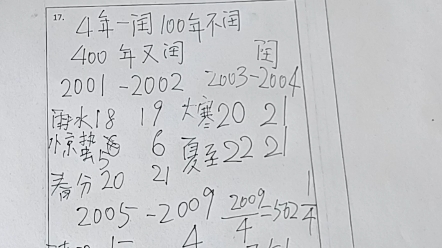 17.
4年一闰 100年不闰
400年又闰 闰
2001-2002 2003-2004
雨水18 19 大寒20 21
惊蛰5 6 夏至22 21
春分20 21
2005-2009 2009/4=502 1/4